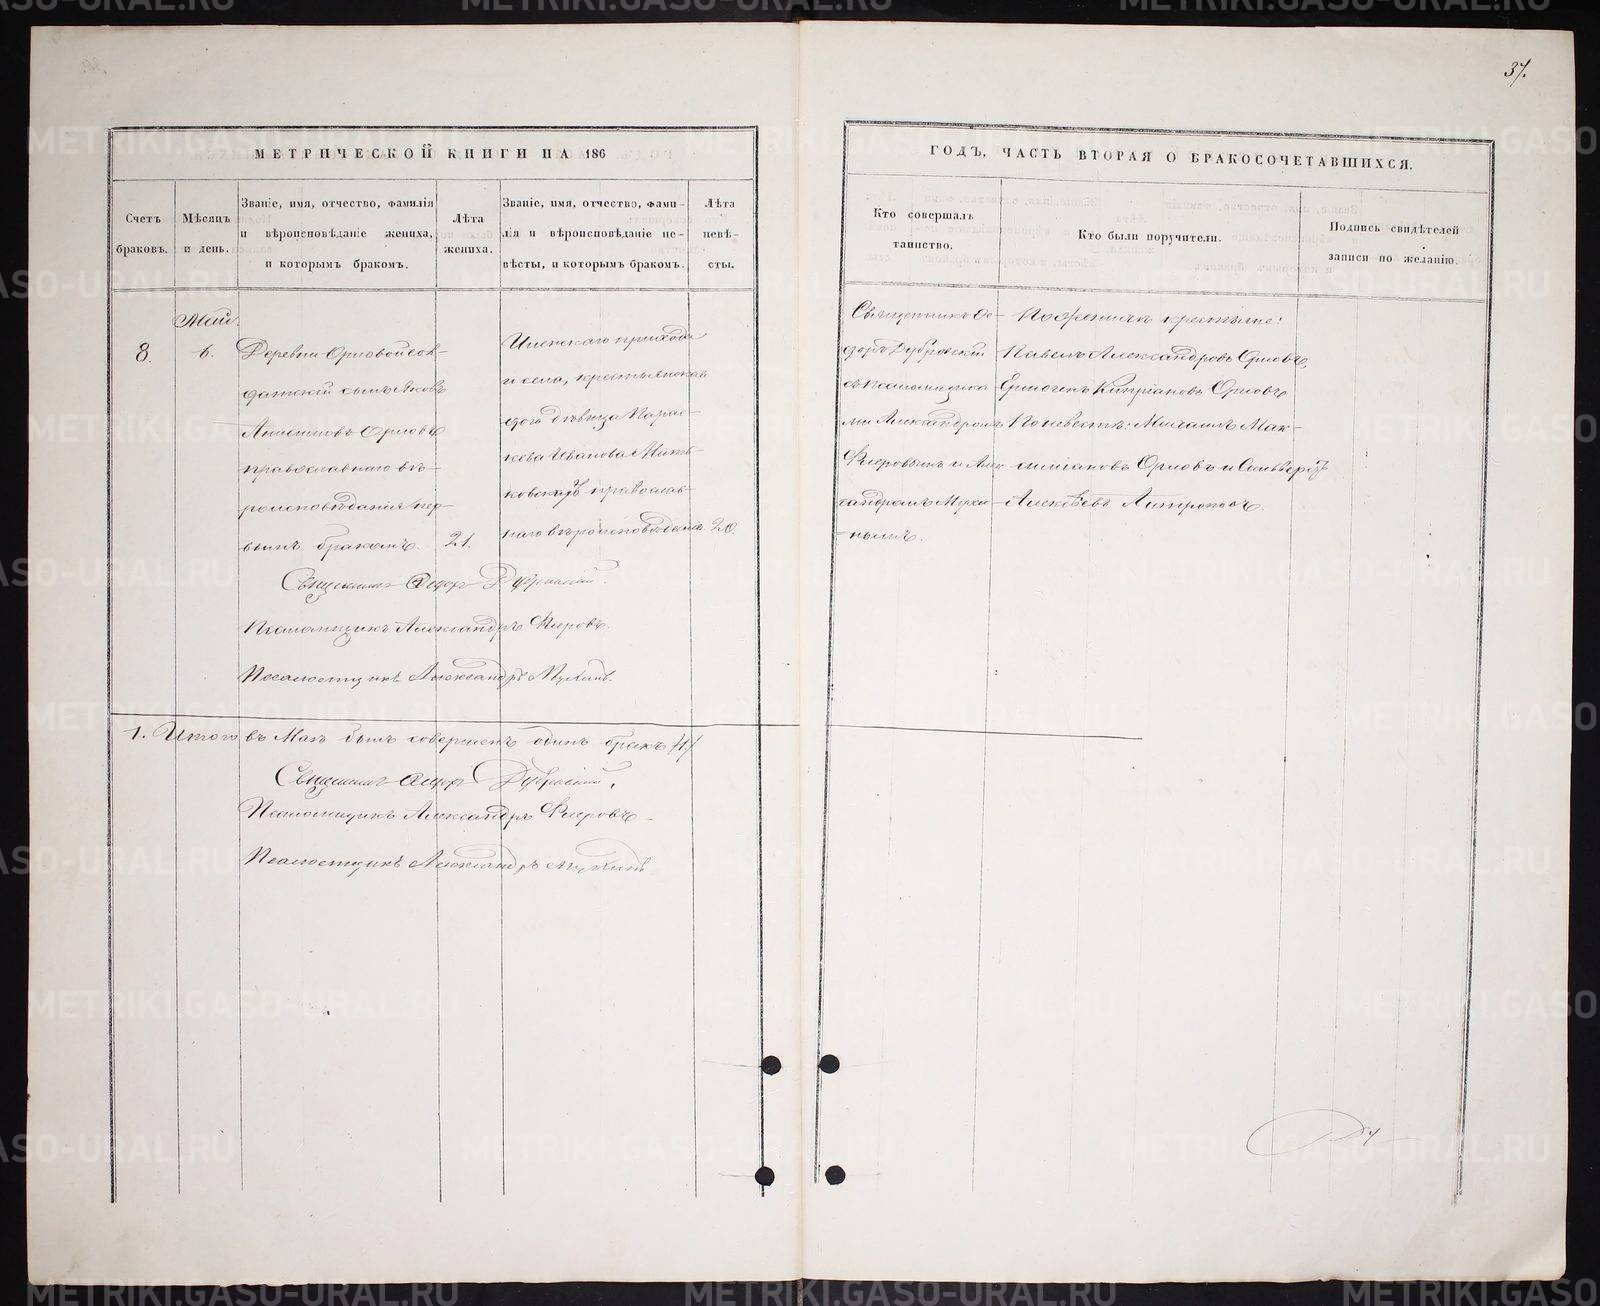 37.
МЕТРИЧЕСКОЙ КНИГИ НА 186
ГОДЪ, ЧАСТЬ ВТОРАЯ О БРАКОСОЧЕТАВШИХСЯ.
Счетъ браковъ.
Мѣсяцъ и день.
Званіе, имя, отчество, фамилія
и вѣроисповѣданіе жениха,
и которымъ бракомъ.
Лѣта
жениха.
Званіе, имя, отчество, фами-
лія и вѣроисповѣданіе не-
вѣсты, и которымъ бракомъ.
Лѣта
невѣ-
сты.
Кто совершалъ
таинство.
Кто были поручители.
Подпись свидѣтелей
записи по желанію.
Май.
8.
6.
Деревни Орловой сол-
датскій сынъ Яковъ
Анисимовъ Орловъ
православнаго вѣ-
роисповѣданія пер-
вымъ бракомъ.
21.
прихода
и села, крестьянская
дочь дѣвица Парас-
кева Иванова
православ-
наго вѣроисповѣданія
20.
Священникъ Ѳе-
доръ Дубровскій
съ псаломщика
ми Александромъ
Флеровымъ и Алек
сандромъ Мухи-
нымъ.
По женихѣ крестьяне:
Павелъ Александровъ Орловъ,
Ермогенъ Кипріановъ Орловъ
По невѣстѣ: Михаилъ Мак-
симіановъ Орловъ и Сильверстъ
Алексѣевъ Антроповъ.
Священникъ Ѳедоръ Дубровскій.
Псаломщикъ Александръ Флеровъ.
Псаломщикъ Александръ Мухинъ.
1. Итого въ Маѣ былъ совершенъ одинъ бракъ /1/
Священникъ Ѳедоръ Дубровскій,
Псаломщикъ Александръ Флеровъ
Псаломщикъ Александръ Мухинъ
METRIKI.GASO-URAL.RU